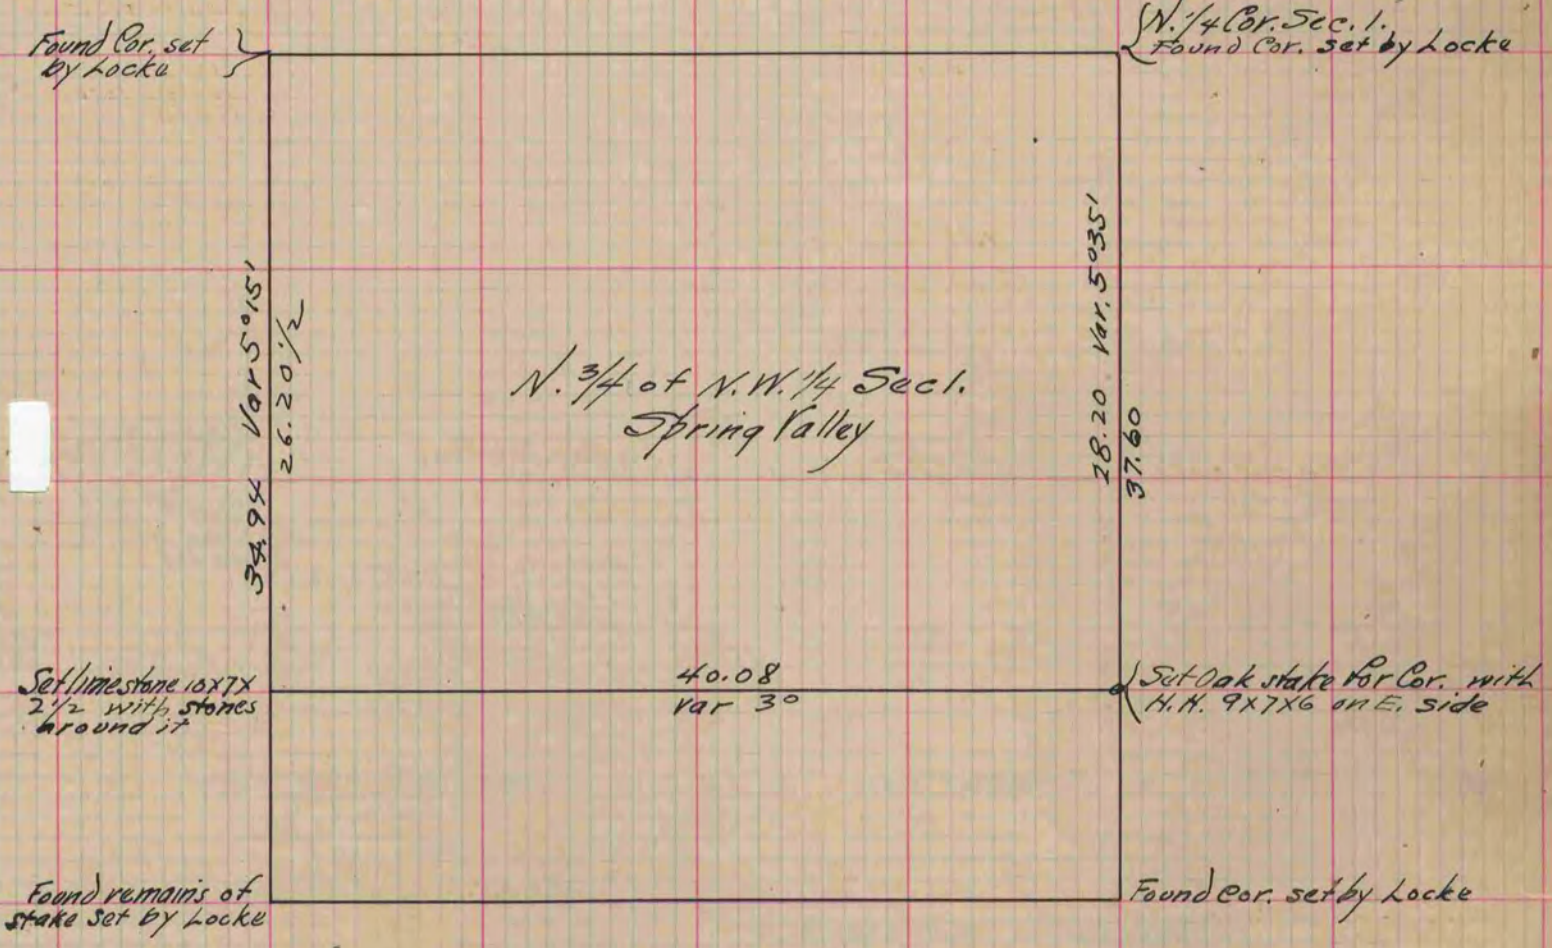 Found Cor. set
by Locke
N. 1/4 Cor. Sec. 1.
Found Cor. set by Locke
34.94 Var 5°15'
26.20 1/2
N. 3/4 of N.W. 1/4 Sec 1.
Spring Valley
28.20 Var. 5°35'
37.60
Set limestone 10x7x
2 1/2 with stones
around it
40.08
Var 3°
Set Oak stake for Cor. with
H.H. 9x7x6 on E. side
Found remains of
stake set by Locke
Found Cor. set by Locke